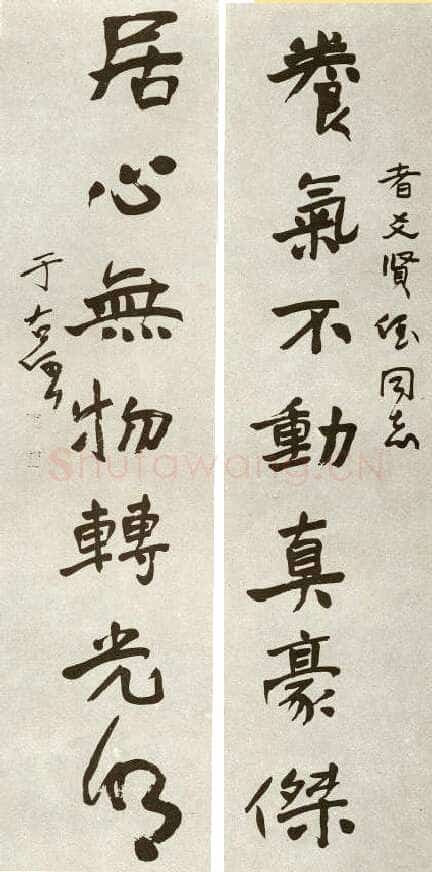 賢侄同志
養氣不動真豪傑
居心無物轉光明
于右任
Shufawang.CN